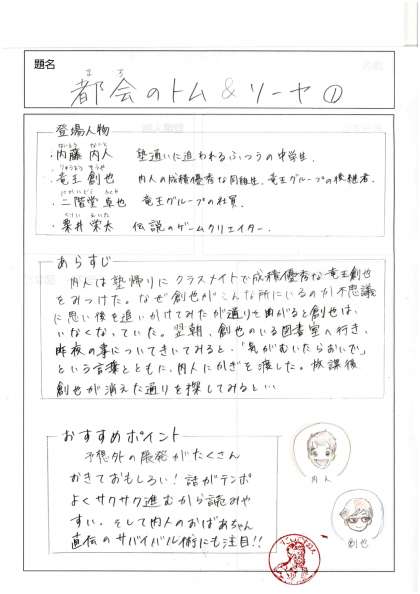 題名
まち
都会のトム&ソーヤ①
登場人物
ないとう ないと
・内藤 内人 塾通いに追われるふつうの中学生.
りゅうおう そうや
・竜王 創也 内人の成績優秀な同級生.竜王グループの後継者.
にかいどう たくや
・二階堂 卓也 竜王グループの社員.
くりい えいた
・栗井 栄太 伝説のゲームクリエイター.
あらすじ
内人は塾帰りにクラスメイトで成績優秀な竜王創也
をみつけた。なぜ創也がこんな所にいるのか不思議
に思い後を追いかけてみたが通りを曲がると創也は、
いなくなっていた。翌朝、創也のいる図書室へ行き、
昨夜の事についてきいてみると、「気がむいたらおいで」
という言葉とともに、内人にかぎを渡した。放課後
創也が消えた通りを探してみると…
おすすめポイント
予想外の展開がたくさん
かきておもしろい!話がテンポ
よくサクサク進むから読みや
すい。そして内人のおばあちゃん
直伝のサバイバル術にも注目!!
内人
創也